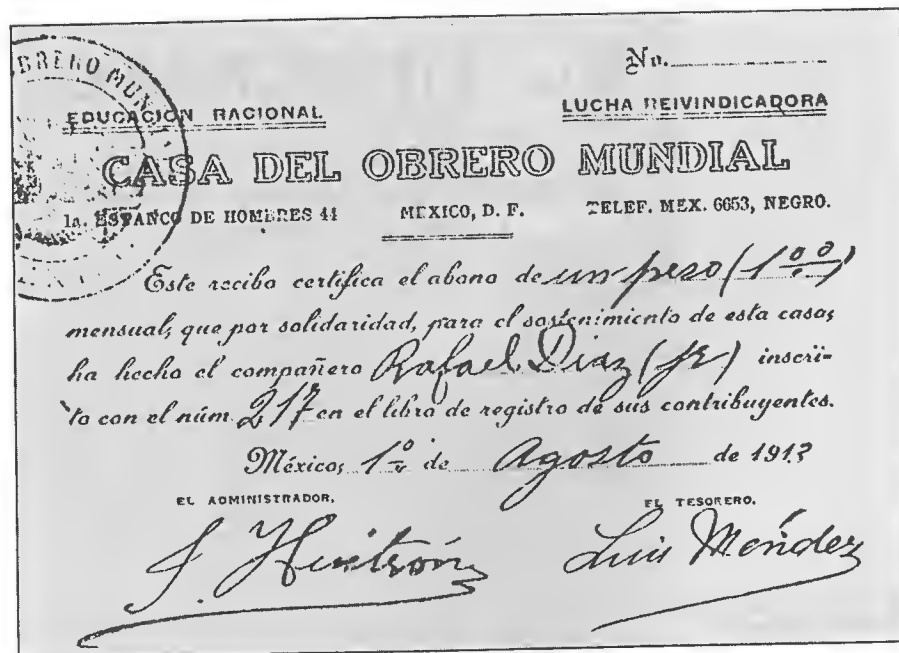 OBRERO MUN
No.
EDUCACIÓN RACIONAL LUCHA REIVINDICADORA
CASA DEL OBRERO MUNDIAL
1a. ESTANCO DE HOMBRES 44 MEXICO, D. F. TELEF. MEX. 6653, NEGRO.
Este recibo certifica el abono de un peso (1 00)
mensual, que por solidaridad, para el sostenimiento de esta casa,
ha hecho el compañero Rafael Diaz (jr) inscri-
to con el núm. 217 en el libro de registro de sus contribuyentes.
México, 1º de Agosto de 1913
EL ADMINISTRADOR, EL TESORERO.
J. Huitrón Luis Méndez